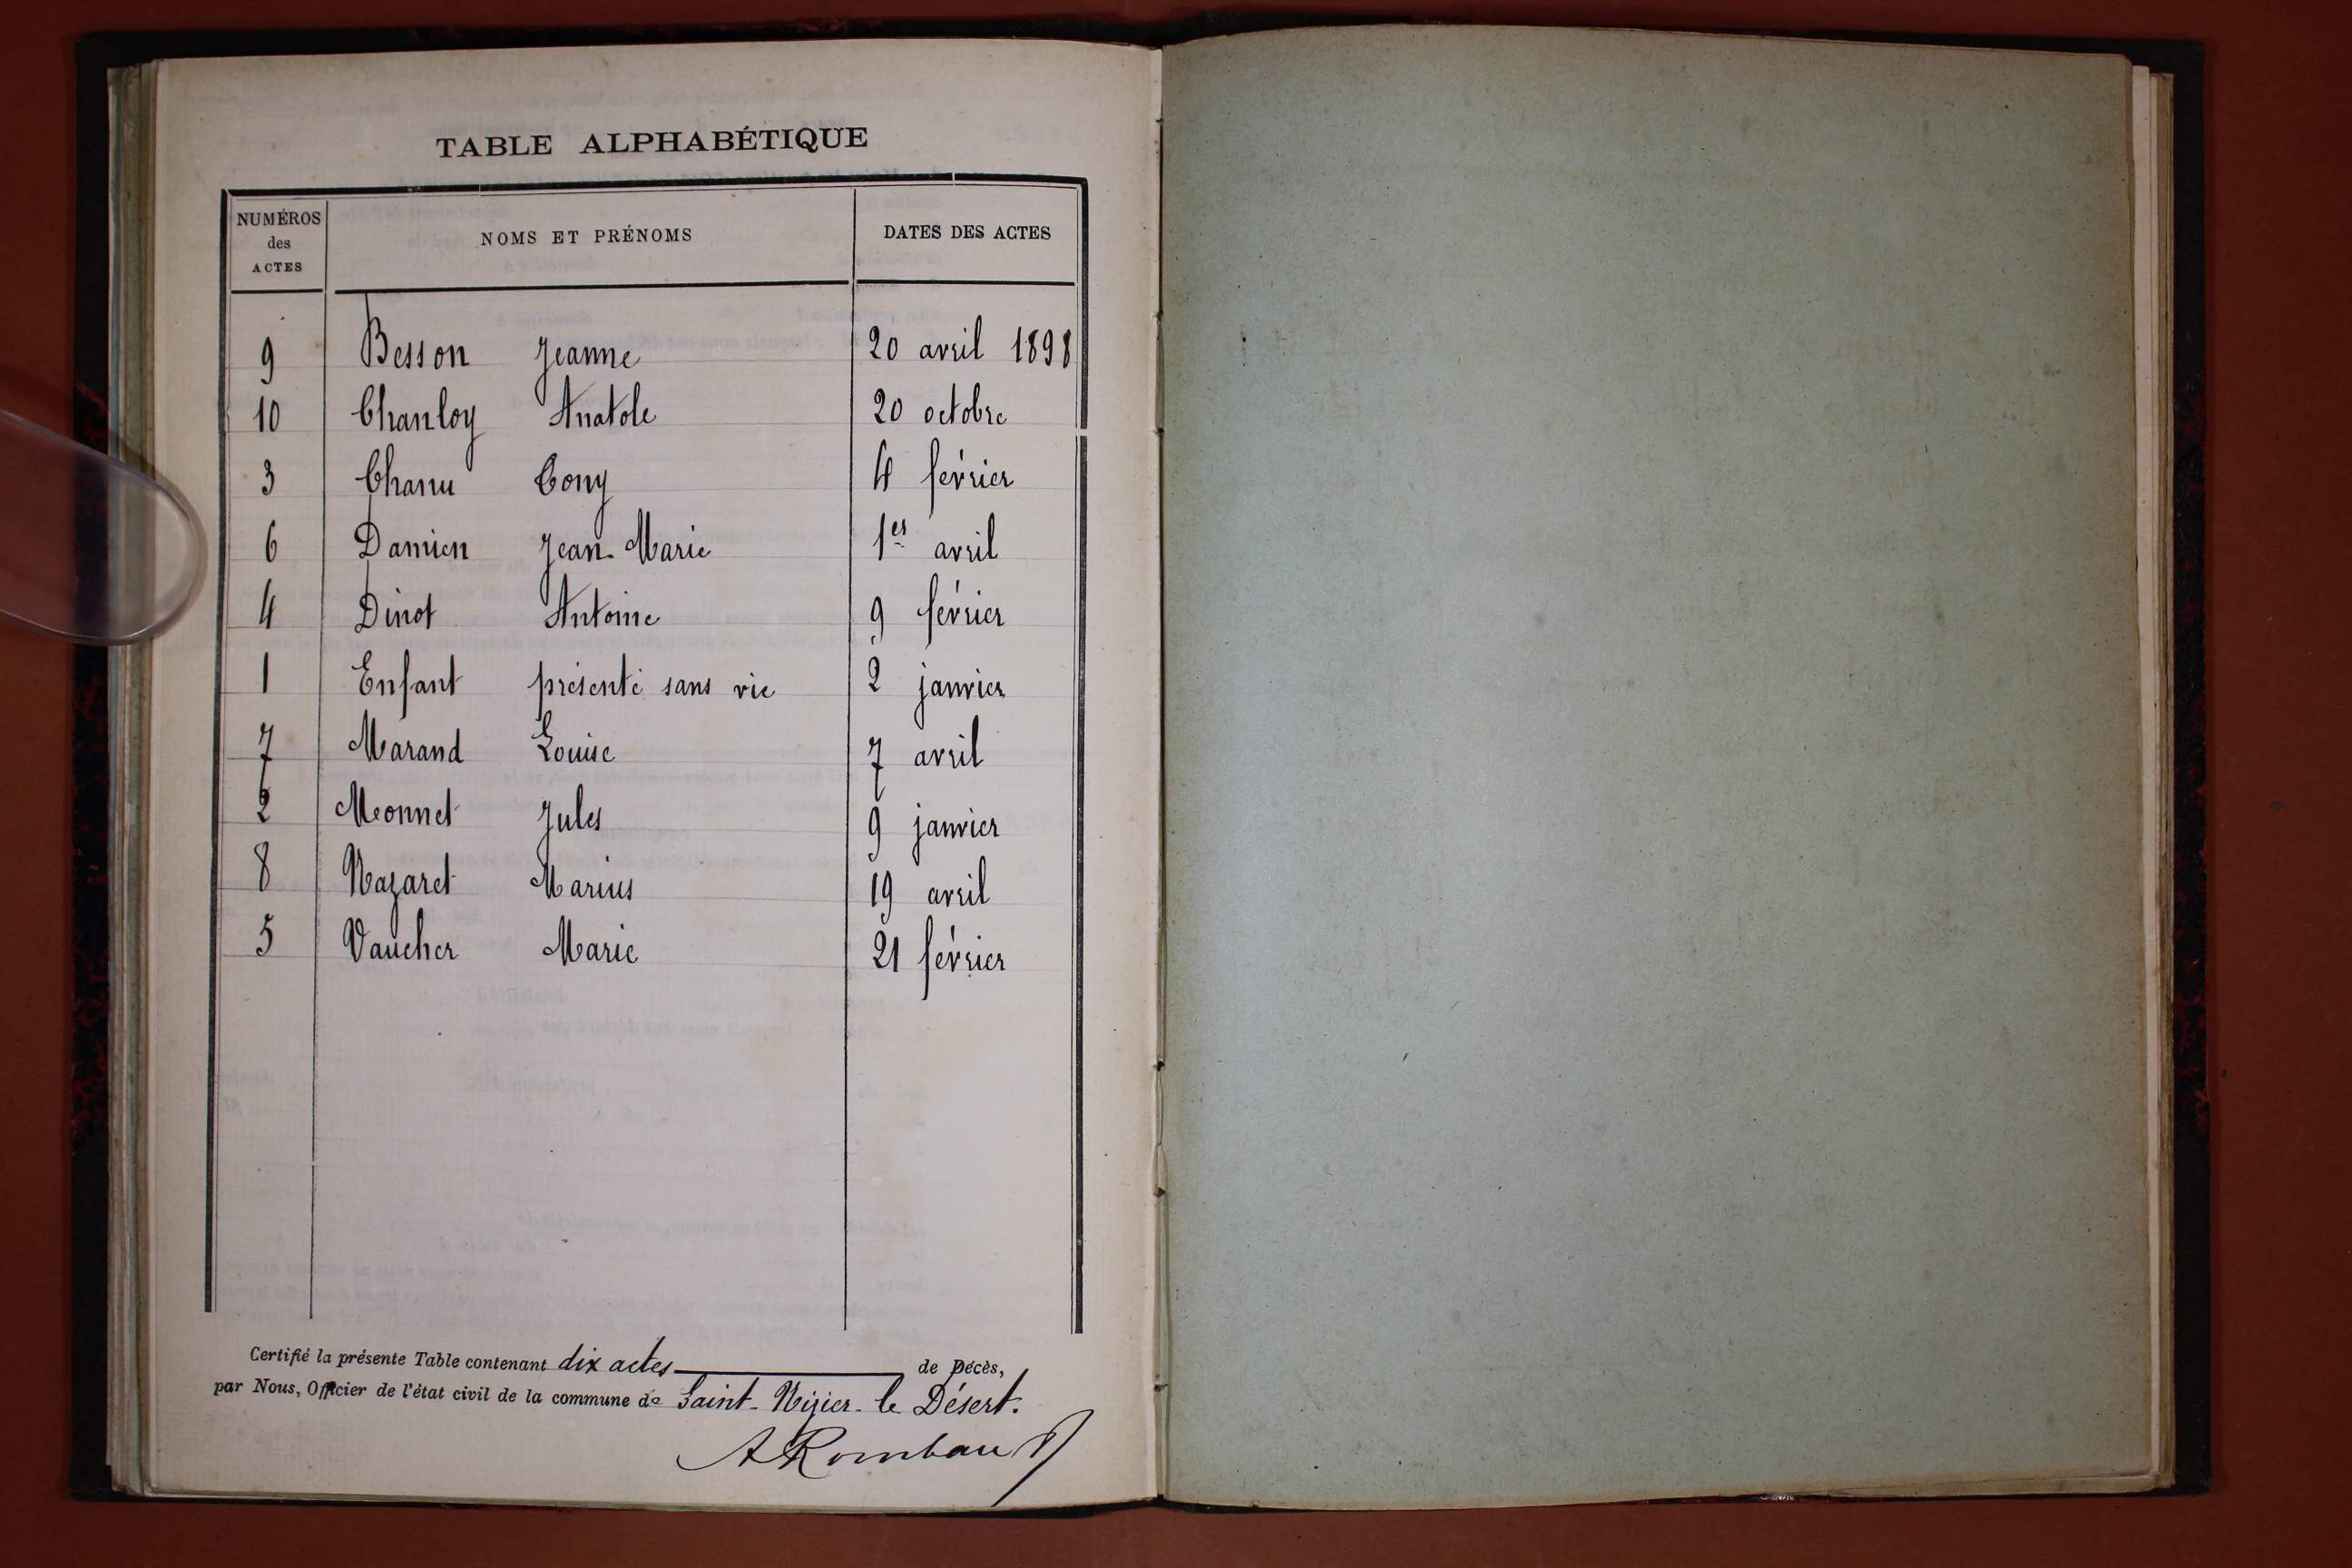 TABLE ALPHABÉTIQUE
NUMÉROS des ACTES NOMS ET PRÉNOMS DATES DES ACTES
9 Besson Jeanne 20 avril 1898
10 Chanloy Anatole 20 octobre
3 Chanu Cony 4 février
6 Damien Jean-Marie 1er avril
4 Dinot Antoine 9 février
1 Enfant présenté sans vie 2 janvier
7 Marand Louise 7 avril
2 Meonnet Jules 9 janvier
8 Nazaret Marius 19 avril
5 Vaucher Marie 21 février
Certifié la présente Table contenant dix actes de Décès,
par Nous, Officier de l'état civil de la commune de Saint-Nizier-le Désert.
A Rombau